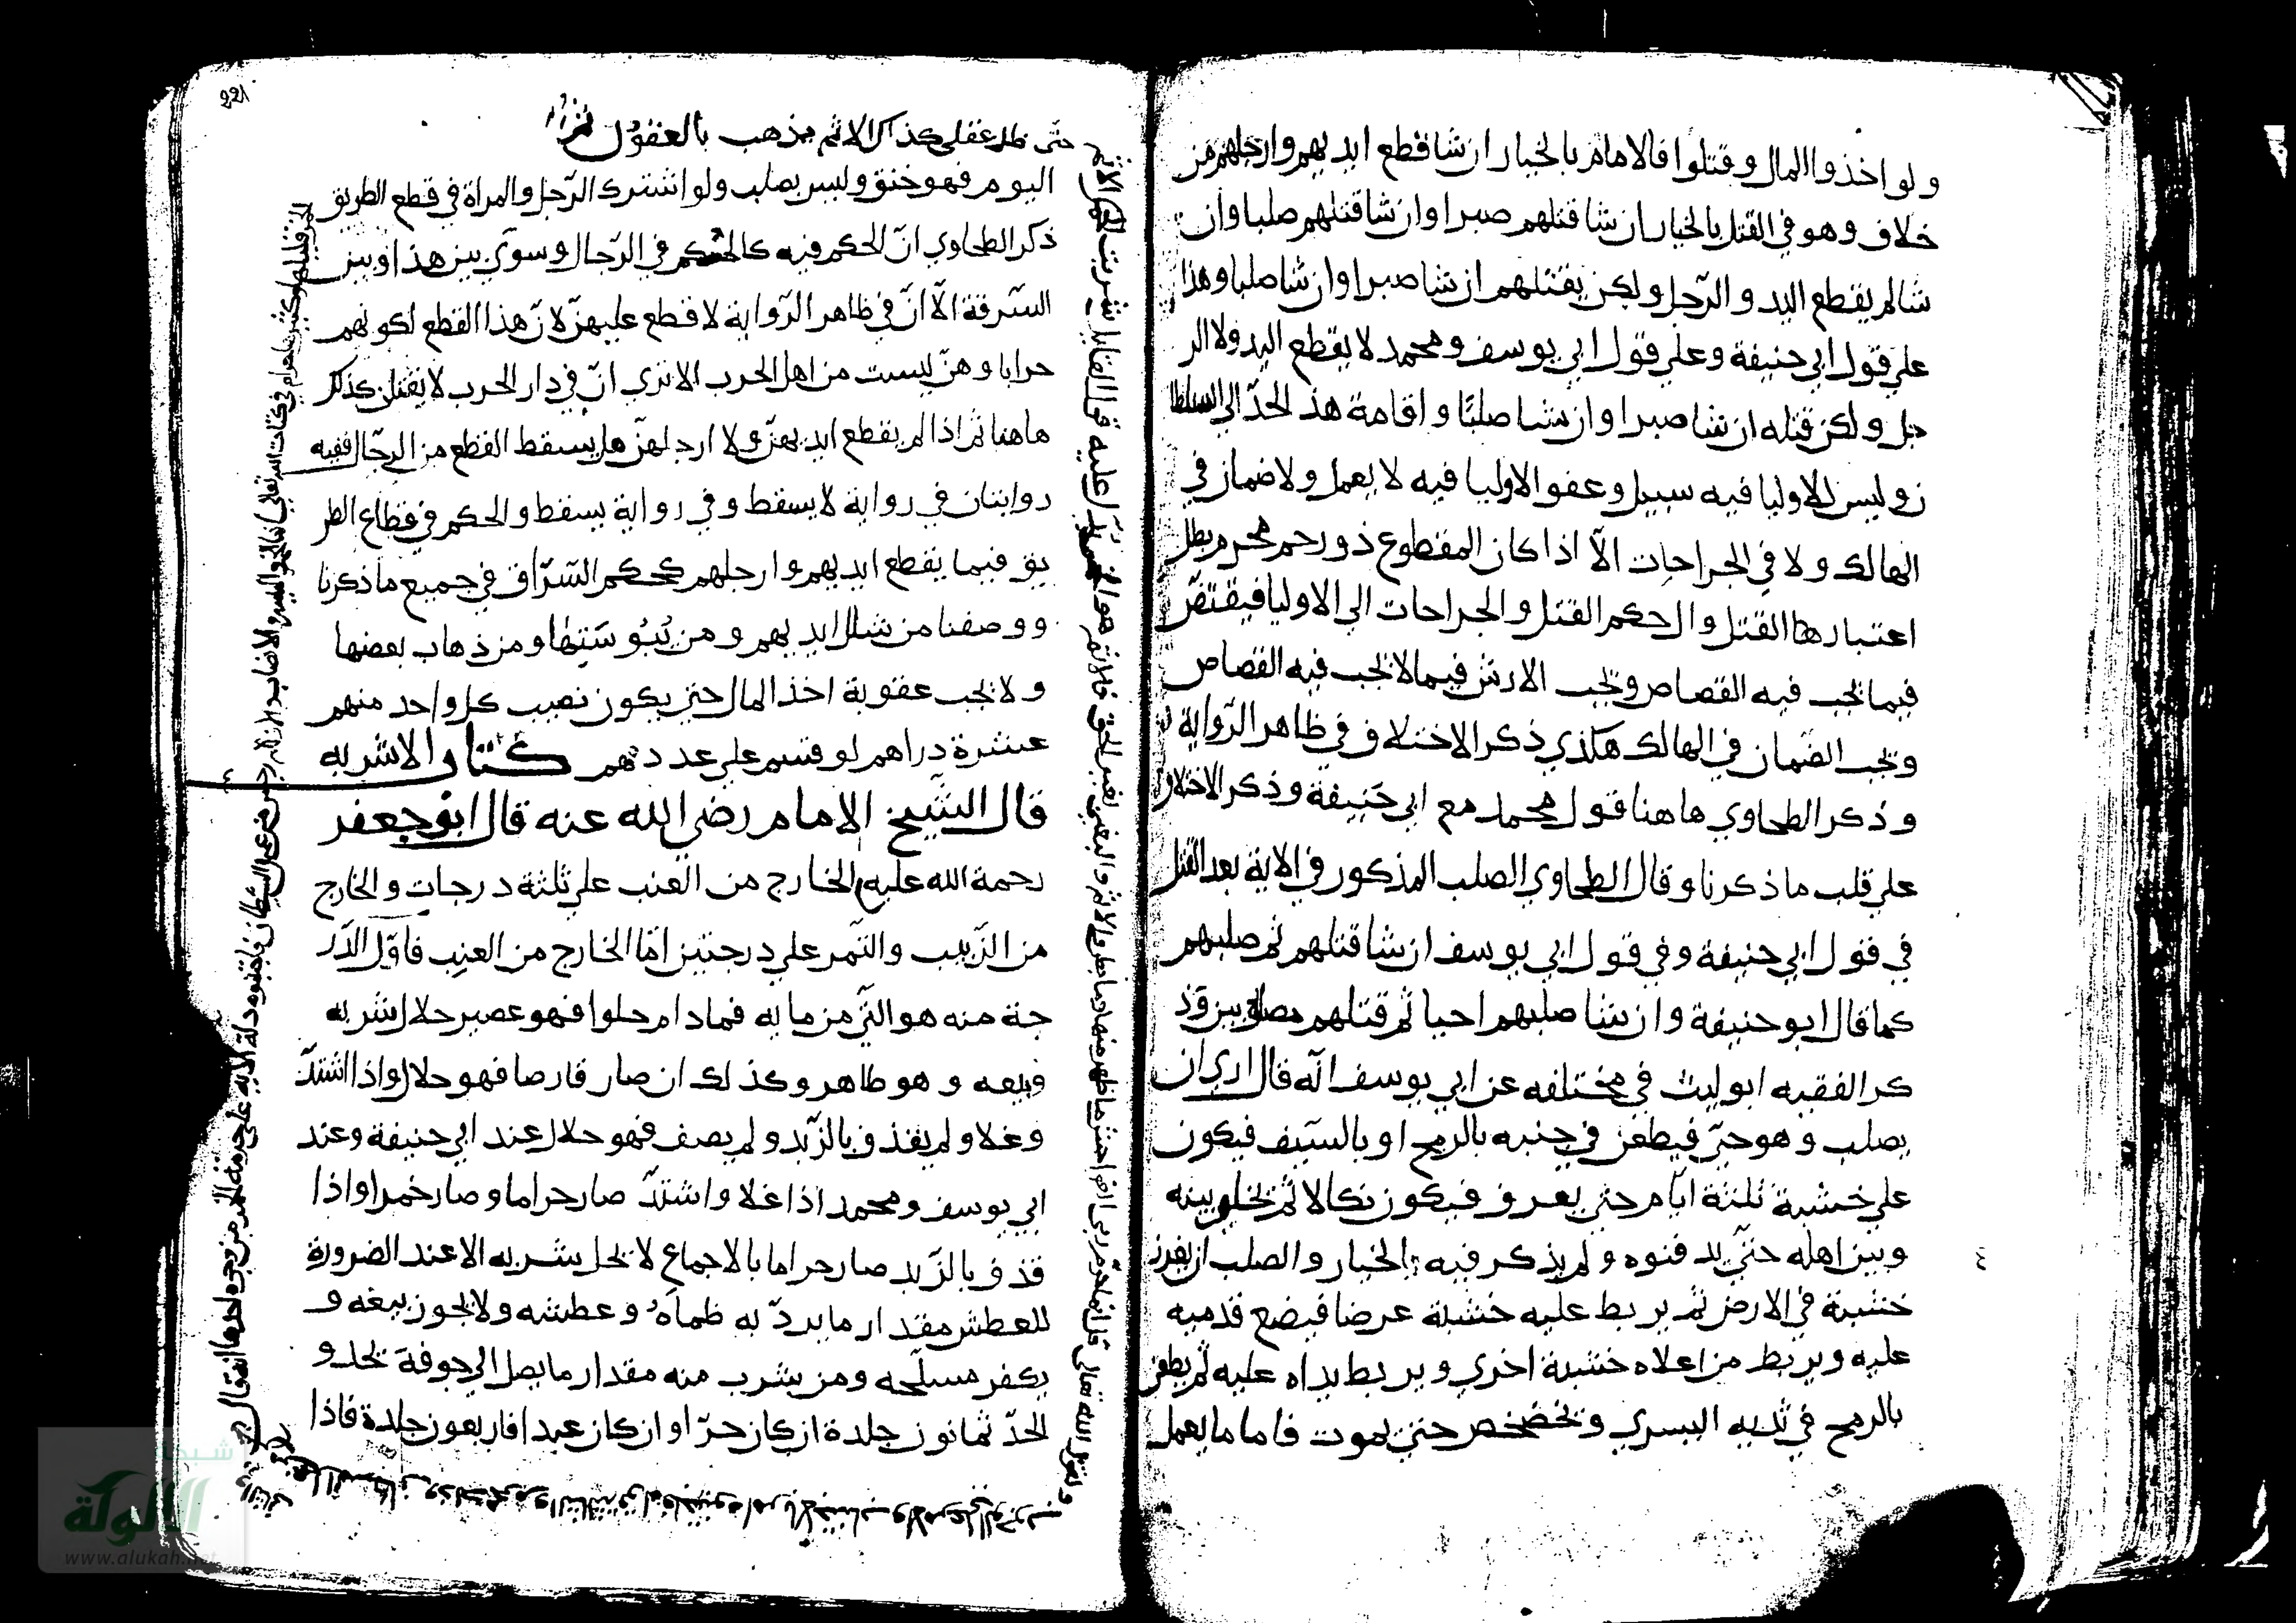 ولو اخذوا المال وقتلوا فالامام بالخيار ان شا قطع ايديهم وارجلهم من
خلاف وهو في القتل بالخيار ان شا قتلهم صبرا وان شا قتلهم صلبا وان
شا لم يقطع اليد والرجل ولكن يقتلهم ان شا صبرا وان شا صلبا وهذا
علي قول ابي حنيفة وعلي قول ابي يوسف ومحمد لا يقطع اليد ولا الر
جل ولكن قتله ان شا صبرا وان شا صلبا واقامة هذ الحد الي السلطا
ن وليس للاوليا فيه سبيل وعفو الاوليا فيه لا يعمل ولا ضمان في
الهالك ولا في الجراحات الا اذا كان المقطوع ذو رحم محرم بطل
اعتبارها القتل والحكم القتل والجراحات الي الاوليا فيقتص
فيما يجب فيه القصاص ويجب الارش فيما لا يجب فيه القصاص
ويجب الضمان في الهالك هكذي ذكر الاختلاف في ظاهر الرواية
وذكر الطحاوي هاهنا قول محمد مع ابي حنيفة وذكر الاختلاف
علي قلب ما ذكرنا وقال الطحاوي الصلب المذكور في الاية بعد القتل
في قول ابي حنيفة وفي قول ابي يوسف ان شا قتلهم ثم صلبهم
كما قال ابو حنيفة وان شا صلبهم احيا ثم قتلهم مصلوبين وذ
كر الفقيه ابو ليث في مختلفه عن ابي يوسف انه قال اري ان
يصلب وهو حي فيطعن في جنبه بالرمح او بالسيف فيكون
علي خشبة ثلثة ايام حتي يعرف فيكون نكالا ثم يخلي بينه
وبين اهله حتي يدفنوه ولم يذكر فيه الخيار والصلب ان يغرز
خشبة في الارض ثم يربط عليه خشبة عرضا فيضع قدميه
عليه ويربط من اعلاه خشبة اخري ويربط يداه عليه ثم يطعن
بالرمح في ثديه اليسري ويخضخض حتي يموت فاما ما يعمل
221
اليوم فهو خنق وليس بصلب ولو اشترك الرجل والمراة في قطع الطريق
ذكر الطحاوي ان الحكم فيه كالحكم في الرجال وسوي بين هذا وبين
السرقة الا ان في ظاهر الرواية لا قطع عليهن لان هذا القطع لكونهم
حرابا وهن ليست من اهل الحرب الا تري ان في دار الحرب لا يقتلن كذلك
هاهنا ثم اذا لم يقطع ايديهن ولا ارجلهن هل يسقط القطع من الرجال ففيه
روايتان في رواية لا يسقط وفي رواية يسقط والحكم في قطاع الطر
يق فيما يقطع ايديهم وارجلهم كحكم السراق في جميع ما ذكرنا
ووصفنا من شلل ايديهم ومن يبوستها ومن ذهاب بعضها
ولا يجب عقوبة اخذ المال حتي يكون نصيب كل واحد منهم
عشرة دراهم لو قسم علي عددهم كتاب الاشربه
قال الشيخ الامام رضي الله عنه قال ابو جعفر
رحمة الله عليه الخارج من العنب علي ثلثة درجات والخارج
من الزبيب والتمر علي درجتين اما الخارج من العنب فاول الدر
جة منه هو الني من مايه فمادام حلوا فهو عصير حلال شربه
وبيعه وهو طاهر وكذلك ان صار قارصا فهو حلال واذا اشتد
وغلا ولم يقذف بالزبد ولم يصف فهو حلال عند ابي حنيفة وعند
ابي يوسف ومحمد اذا غلا واشتد صار حراما وصار خمرا واذا
قذف بالزبد صار حراما بالاجماع لا يحل شربه الا عند الضرورة
للعطش مقدار ما يرد به ظماه وعطشه ولا يجوز بيعه و
يكفر مستحله ومن يشرب منه مقدار ما يصل الي جوفه يحد و
الحد ثمانون جلدة ان كان حر او ان كان عبدا فاربعون جلدة فاذا
شبكة
الألوكة
www.alukah.net